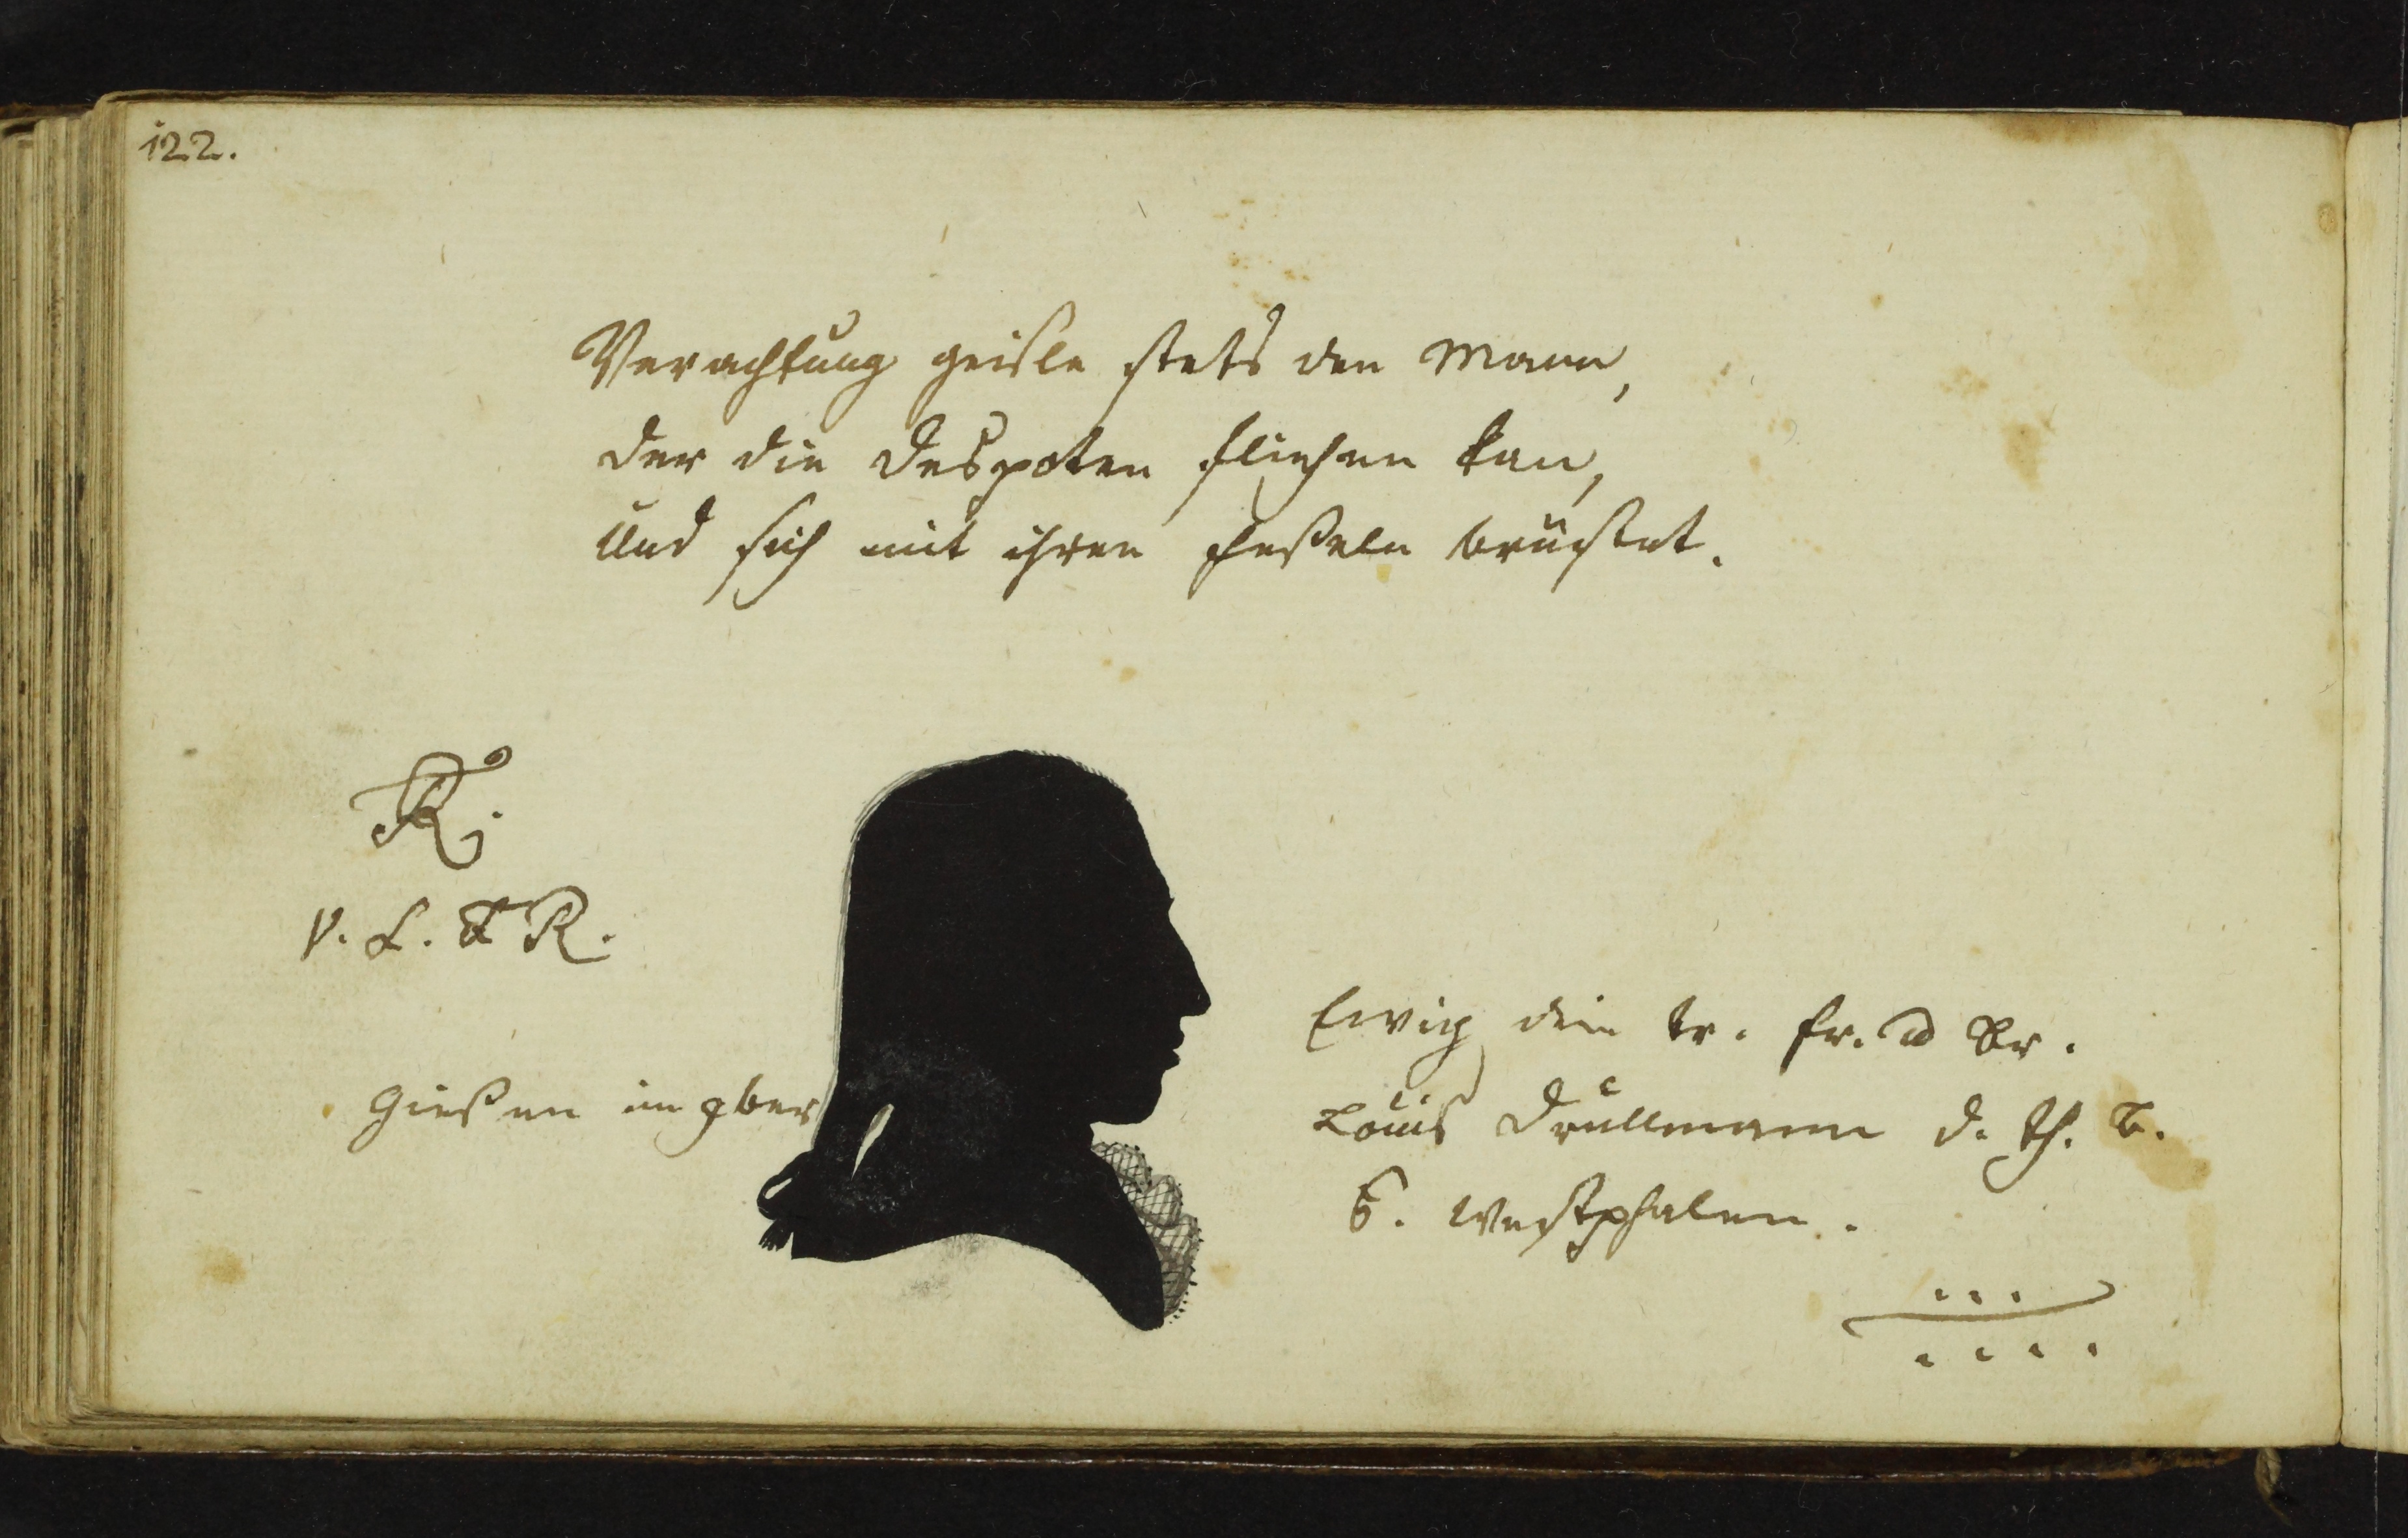 122.
Verachtung geisle stets den Mann,
der die Despoten fliehen kan,
Und sich mit ihren Feßeln brüstet.
V. L. & R.
Gießen im 9ber
Ewig dein tr. Fr. u Br.
Louis Drullmann d. th. B.
S. Westphalen.